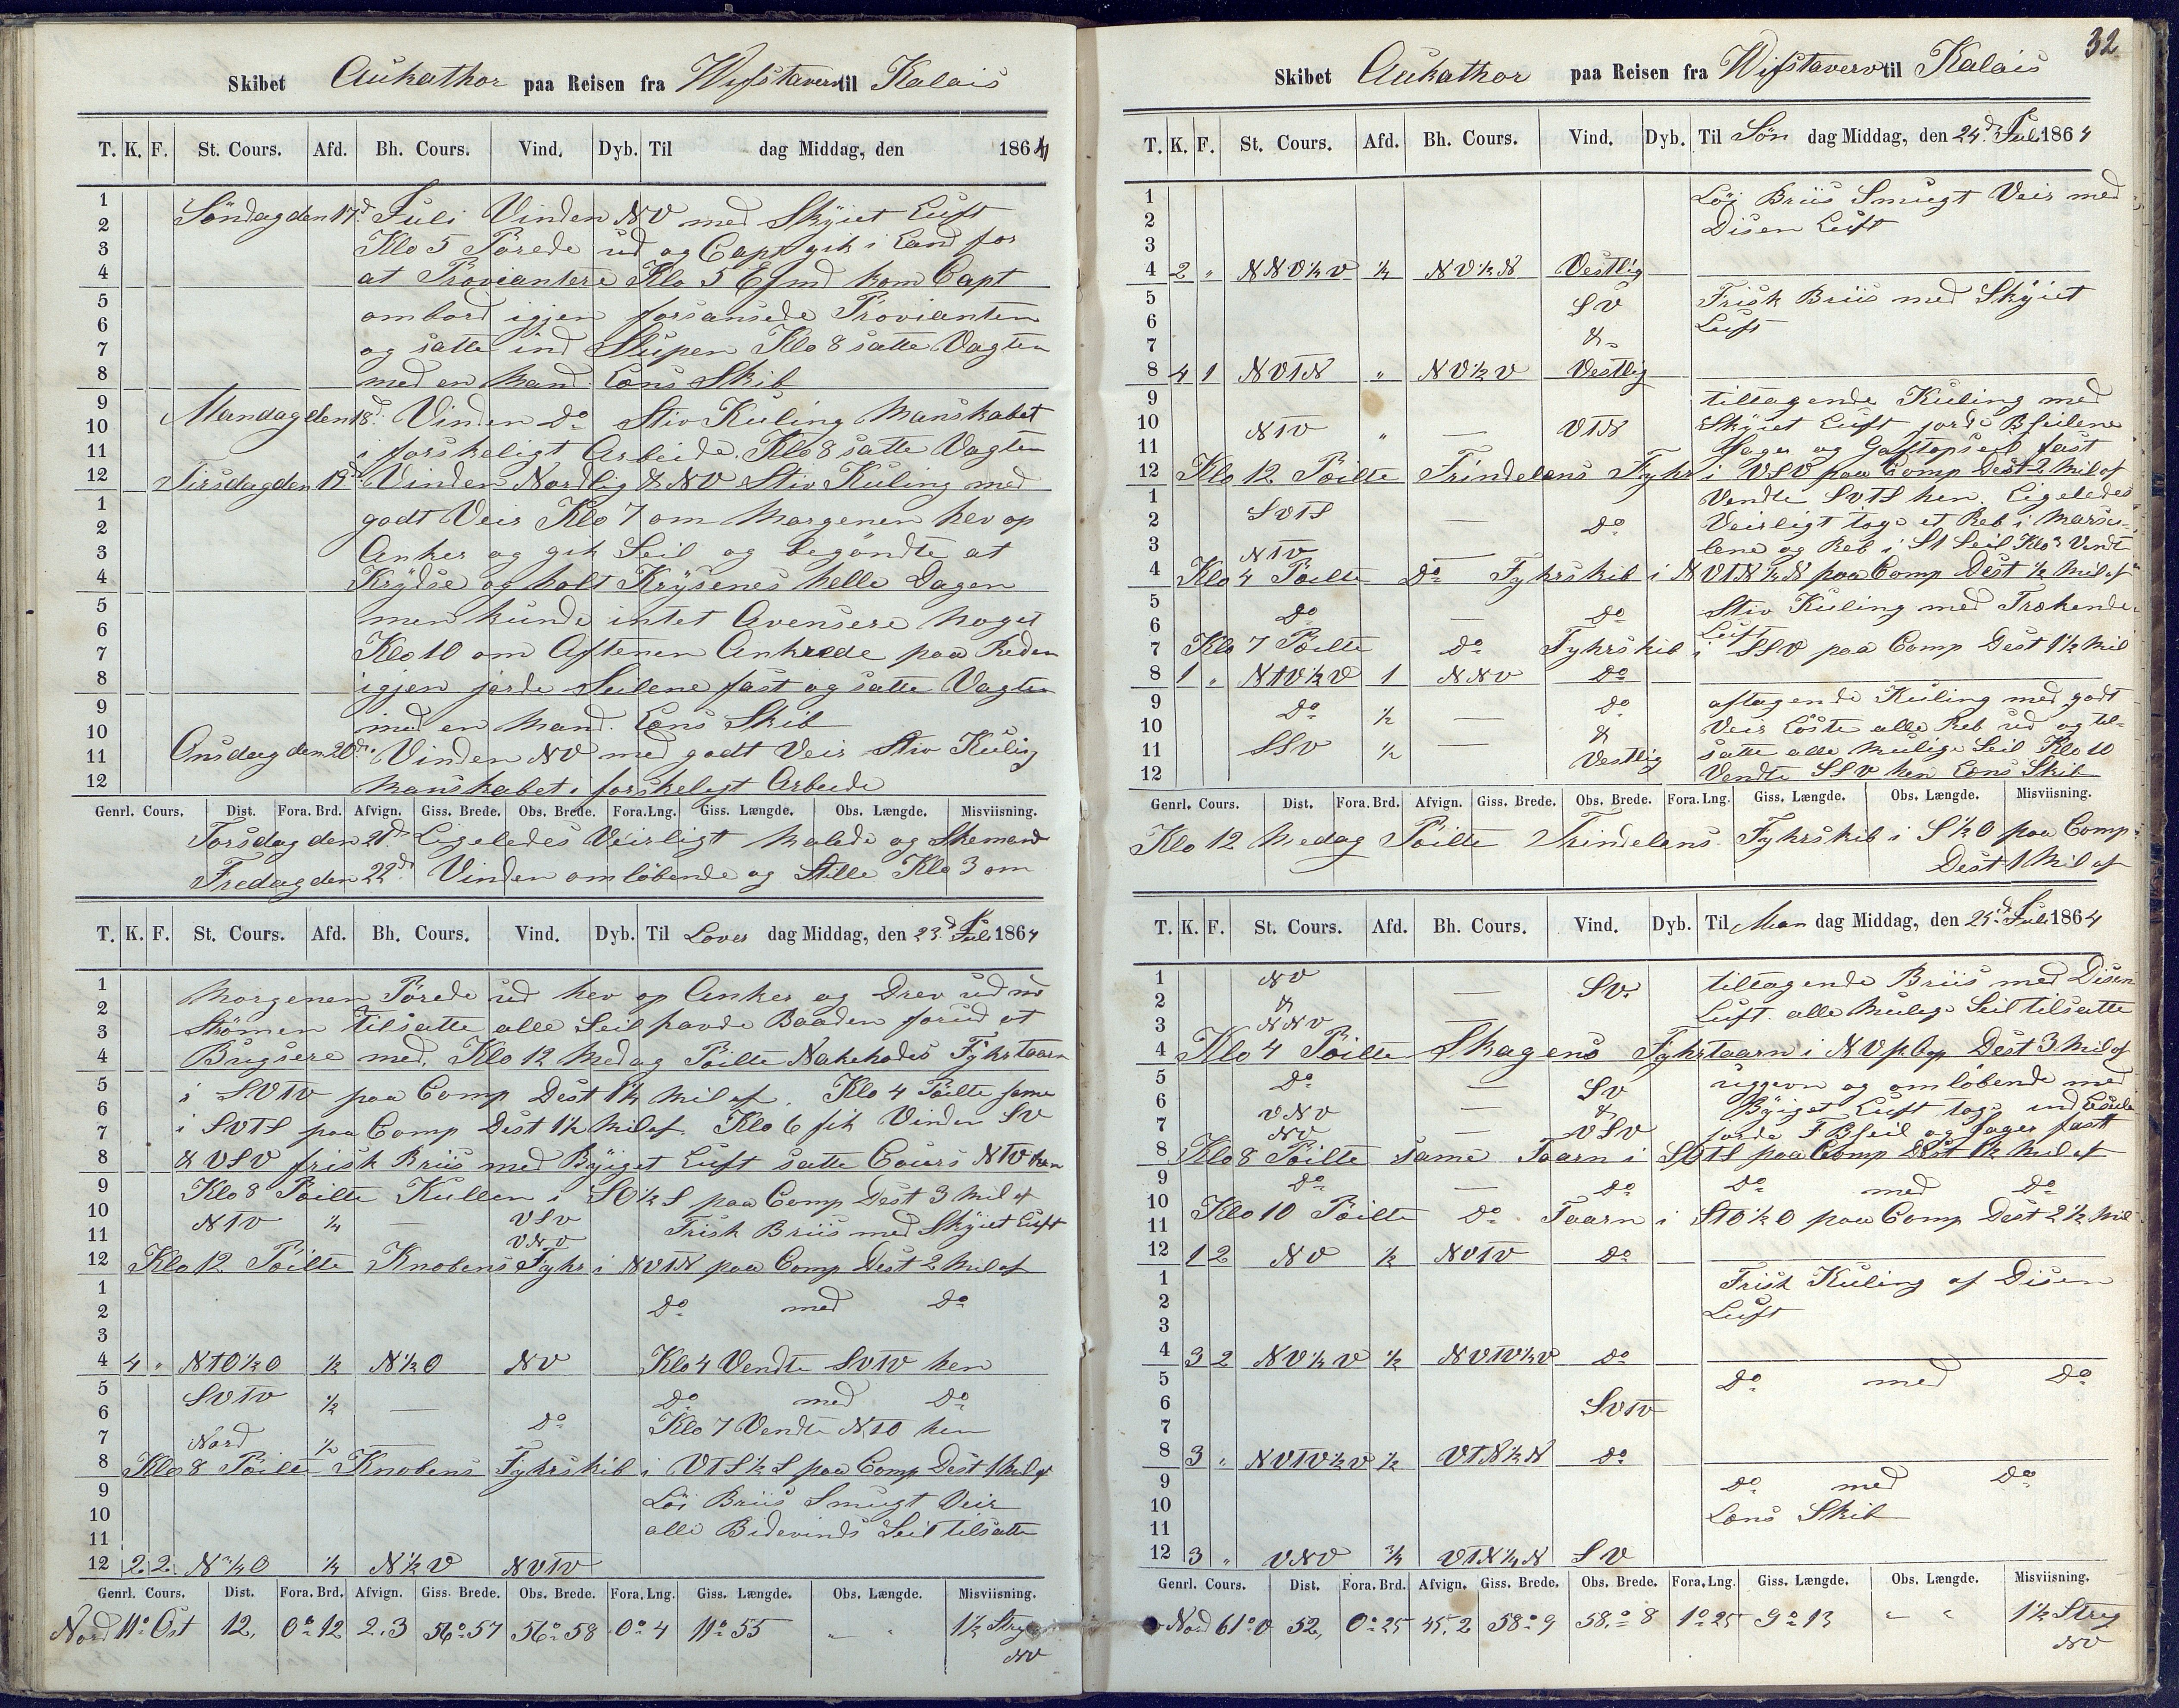 Skibet Aukathor paa Reisen fra Wifstaverv til Kalais
T. K. F. St. Cours. Afd. Bh. Cours. Vind. Dyb. Til dag Middag, den 1864
1
2 Söndag den 17d Juli Vinden NV med Skÿiet Luft
3 Klo 5 Pörede ud og Capt gik i Land for
4 at Proviantere Klo 5 Efmd kom Capt
5 ombord igjen forsansede Provianten
6
7 og satte ind Slupen Klo 8 satte Vagten
8 med en Mand. Læns Skib
9 Mandag den 18d Vinden Do Stiv Kuling Manskabet
10
11 i forskeligt Arbeide. Klo 8 satte Vagten
12 Tirsdag den 19d Vinden Nordlig & NV Stiv Kuling med
1 godt Veir Klo 7 om Morgenen hev op
2
3 Anker og gik Seil og begöndte at
4 Krÿdse og holt Krÿsenes helle Dagen
5 men kunde intet Avensere noget
6
7 Klo 10 om Aftenen Ankrede paa Reden
8 igjen jorde Seilene fast og satte Vagten
9 med en Mand. Læns Skib
10
11 Onsdag den 20d Vinden NV med godt Veir Stiv Kuling
12 Manskabet i forskeligt Arbeide
Genrl. Cours. Dist. Fora. Brd. Afvign. Giss. Brede. Obs. Brede. Fora. Lng. Giss. Længde. Obs. Længde. Misviisning.
Torsdag den 21d Ligeledes Veirligt Malede og Skemand
Fredag den 22d Vinden omlöbende og Stille Klo 3 om
T. K. F. St. Cours. Afd. Bh. Cours. Vind. Dyb. Til Löver dag Middag, den 23d Juli 1864
1 Morgenen Pörede ud hev op Anker og Drev ud md
2
3 Strömen Tilsatte alle Seil havde Baaden forud at
4 Bugsere med. Klo 12 Medag Pöilte Nakehodes Fÿhrtaarn
5 i SVTV paa Comp Dest 1¼ Mil af. Klo 4 Pöilte same
6
7 i SVTS paa Comp Dest 1½ Mil af. Klo 6 fik Vinden SV
8 & VSV frisk Briis med Bÿiget Luft satte Cours NTV hen
9 Klo 8 Pöilte Kullen i SO½S paa Comp Dest 3 Mil af
10 NTV ¼ — VSV
11 VNV Frisk Briis med Skÿiet Luft
12 Klo 12 Pöilte Knobens Fÿhr i NVTN paa Comp Dest 2 Mil af
1
2 Do med Do
3
4 4 " NTO½O ½ N½O NV Klo 4 Vendte SVTV hen
5 SVTV ½ — Do med Do
6 Do Klo 7 Vendte NTO hen
7 Nord ½ —
8 Klo 8 Pöilte Knobens Fÿhrskib i VTS½S paa Comp Dest 1 Mil af
9 Löi Briis Smugt Veir
10
11 alle Bidevinds Seil tilsatte
12 2 2 N¾O ¼ N½V NVTV
Genrl. Cours. Dist. Fora. Brd. Afvign. Giss. Brede. Obs. Brede. Fora. Lng. Giss. Længde. Obs. Længde. Misviisning.
Nord 11° Öst 12, 0°12 2.3 56°57 56°58 0°4 11°55 " " 1½ Streg
NV
32
Skibet Aukathor paa Reisen fra Wifstaverv til Kalais
T. K. F. St. Cours. Afd. Bh. Cours. Vind. Dyb. Til Sön dag Middag, den 24d Juli 1864
1 Löi Briis Smugt Veir med
2 Disen Luft
3
4 2 " NNV½V ½ NV½N Vestlig
5 SV Frisk Briis med Skÿiet
6 Luft
7 &
8 4 1 NVTN " NV½V Vestlig
9 tiltagende Kuling med
10 NTV " — VTN Skÿiet Luft jorde Bseilene
11 Jager og Gaftopseil fast
12 Klo 12 Pöilte Trindelens Fÿhr i VSV paa Comp Dest 2 Mil af
1 Vendte SVTS hen. Ligeledes
2 SVTS — Do Veirligt toge et Reb i Marse-
3 NTV — lene og Reb i St Seil Klo 3 Vendt
4 Klo 4 Pöilte Do Fÿhrskib i NVTN½N paa Comp Dest ½ Mil af
5 Do — Do Stiv Kuling med Trækende
6 Luft
7 Klo 7 Pöilte Do Fÿhrskib i SSV paa Comp Dest 1½ Mil
8 1 " NTV½V 1 NNV Do
9 Do ½ — Do aftagende Kuling med godt
10 & Veir Löste alle Reb ud og til-
11 SSV ½ — Vestlig satte alle Mulige Seil Klo 10
12 Vendte SSV hen Læns Skib
Genrl. Cours. Dist. Fora. Brd. Afvign. Giss. Brede. Obs. Brede. Fora. Lng. Giss. Længde. Obs. Længde. Misviisning.
Klo 12 Medag Pöilte Trindelens Fÿhrskib i S½O paa Comp
Dest 1 Mil af
T. K. F. St. Cours. Afd. Bh. Cours. Vind. Dyb. Til Man dag Middag, den 25d Juli 1864
1 NV — SV. tiltagende Briis med Disen
2 &
3 NNV Luft. alle Mulige Seil tilsatte
4 Klo 4 Pöilte Skagens Fÿhrtaarn i NV p. Cop Dest 3 Mil af
5 Do — SV uggevn og omlöbende med
6 VNV — & Bÿiget Luft toge ind
7 NV — VSV jorde F Bseil og Jager fast
8 Klo 8 Pöilte same Taarn i SOTS paa Comp Dest 1½ Mil af
9 Do — Do Do med Do
10 Klo 10 Pöilte Do Taarn i STO½O paa Comp Dest 2½ Mil
11
12 1 2 NV ½ NVTV Do
1 Frisk Kuling af Disen
2 Luft
3
4 3 2 NV½V ½ NVTV½V Do
5 Do med Do
6 SVTV
7
8 3 " NVTV½V ½ VTN½N Do
9 Do med Do
10 Læns Skib
11
12 3 " VNV ¾ VTN¼N SV
Genrl. Cours. Dist. Fora. Brd. Afvign. Giss. Brede. Obs. Brede. Fora. Lng. Giss. Længde. Obs. Længde. Misviisning.
Nord 61° V 52, 0°25 45.2 58°9 58°8 1°25 9°13 " " 1½ Streg
NV